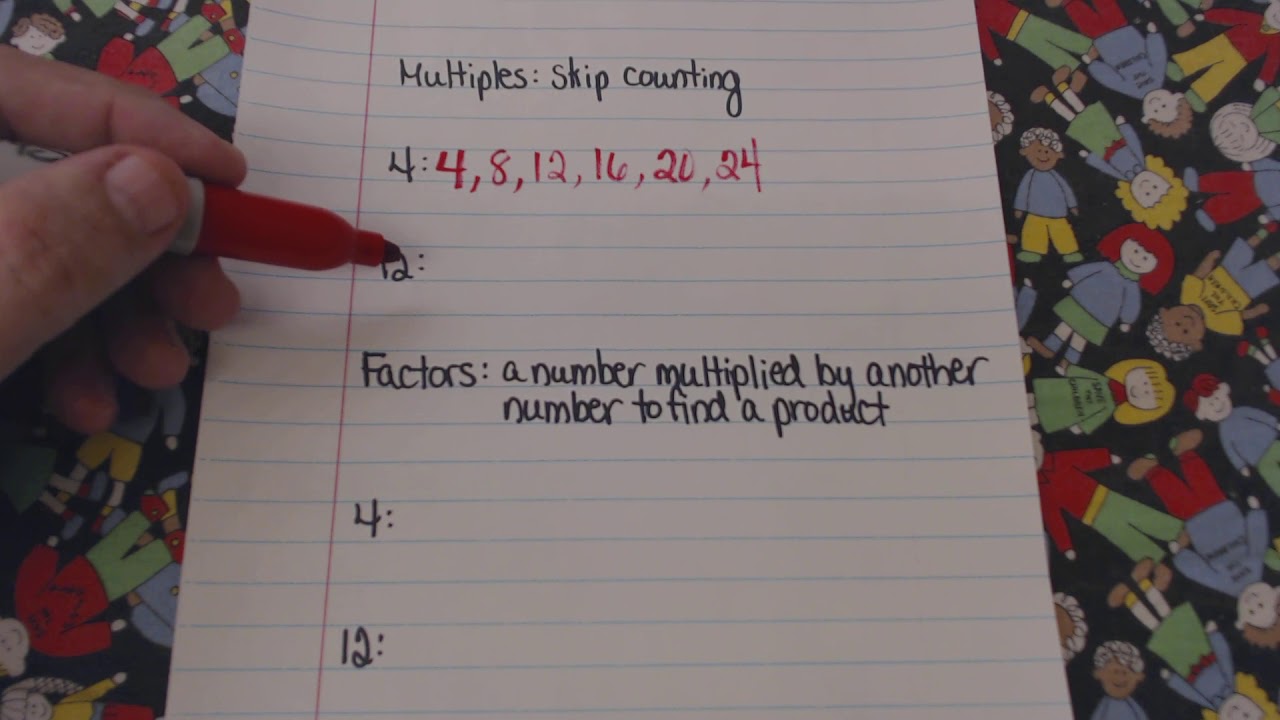 Multiples: skip counting
4: 4, 8, 12, 16, 20, 24
12:
Factors: a number multiplied by another
number to find a product
4:
12: